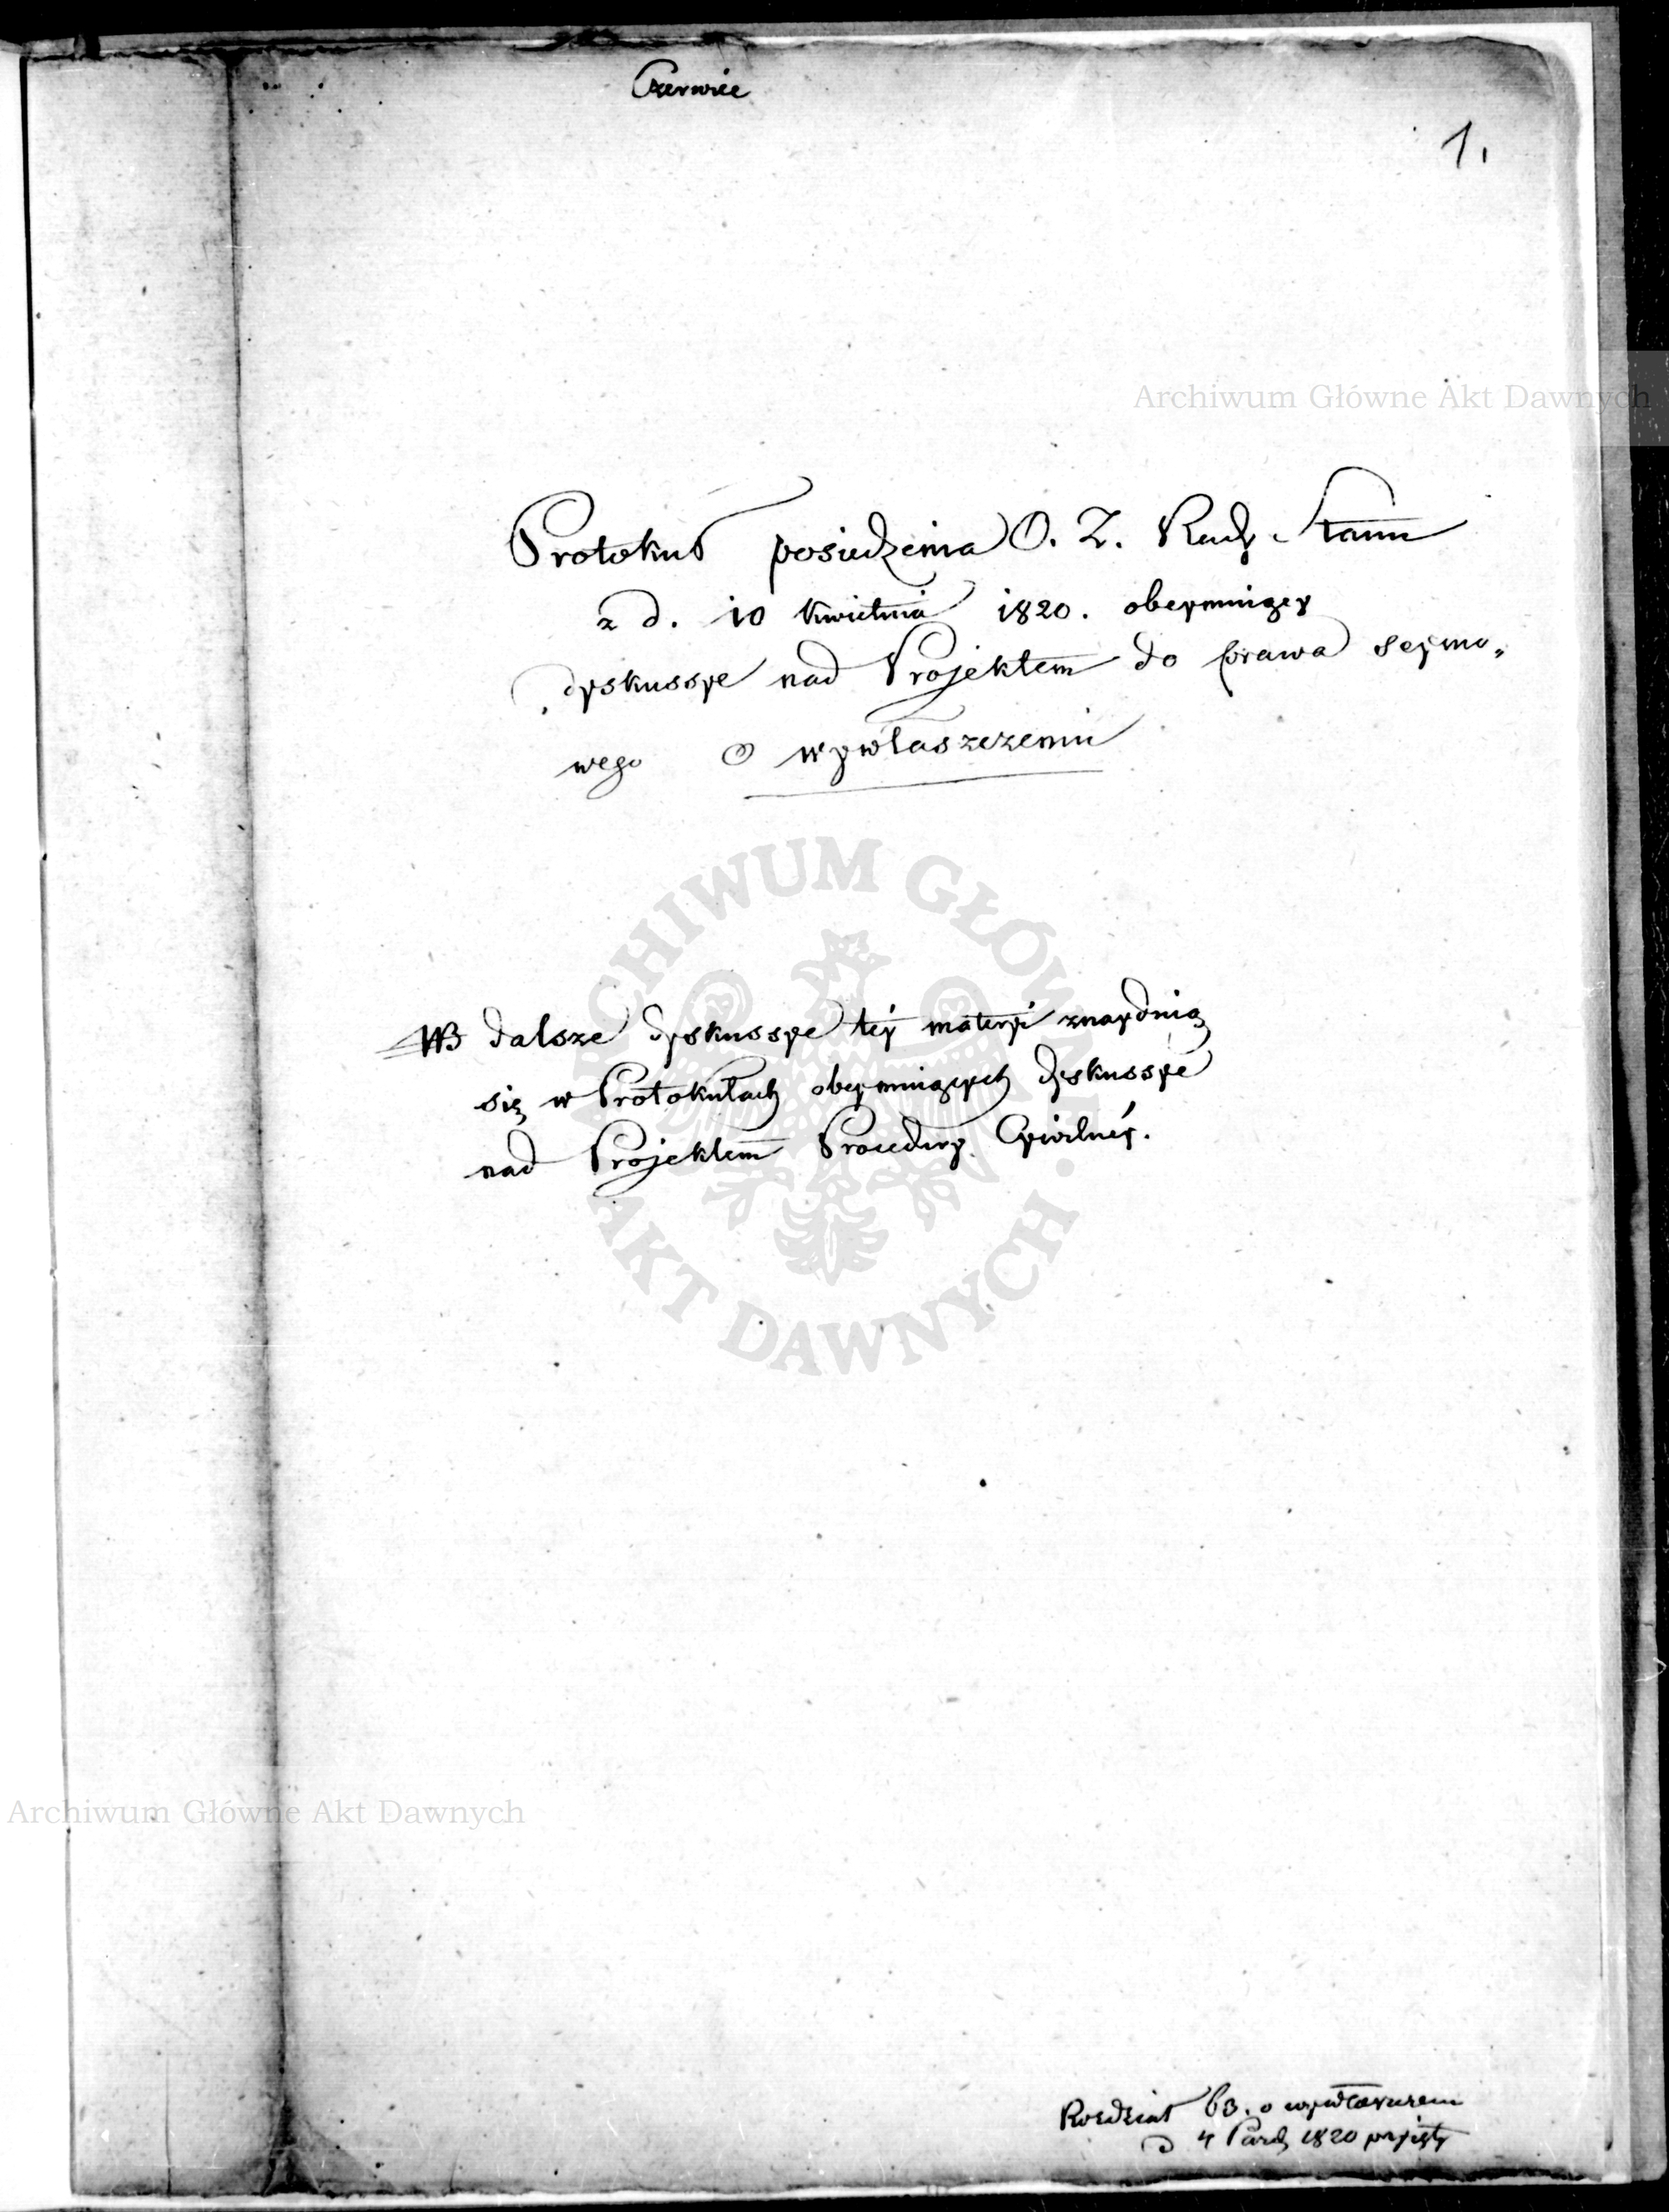 Czerwiec
1.
Archiwum Główne Akt Dawnych
Protokuł posiedzenia O. Z. Rady Stanu
z d. 10 Kwietnia 1820. obeymuiący
dyskussye nad Projektem do prawa seymo„
wego O wywłaszczeniu
ARCHIWUM GŁÓWNE · AKT DAWNYCH ·
NB dalsze dyskussye téy materyi znayduią
się w Protokułach obeymuiących dyskussye
nad Projektem Procedury Cywilnéy.
Archiwum Główne Akt Dawnych
Rozdział 63. o wywłaszczen
d 4 Paźdz 1820 przyięty